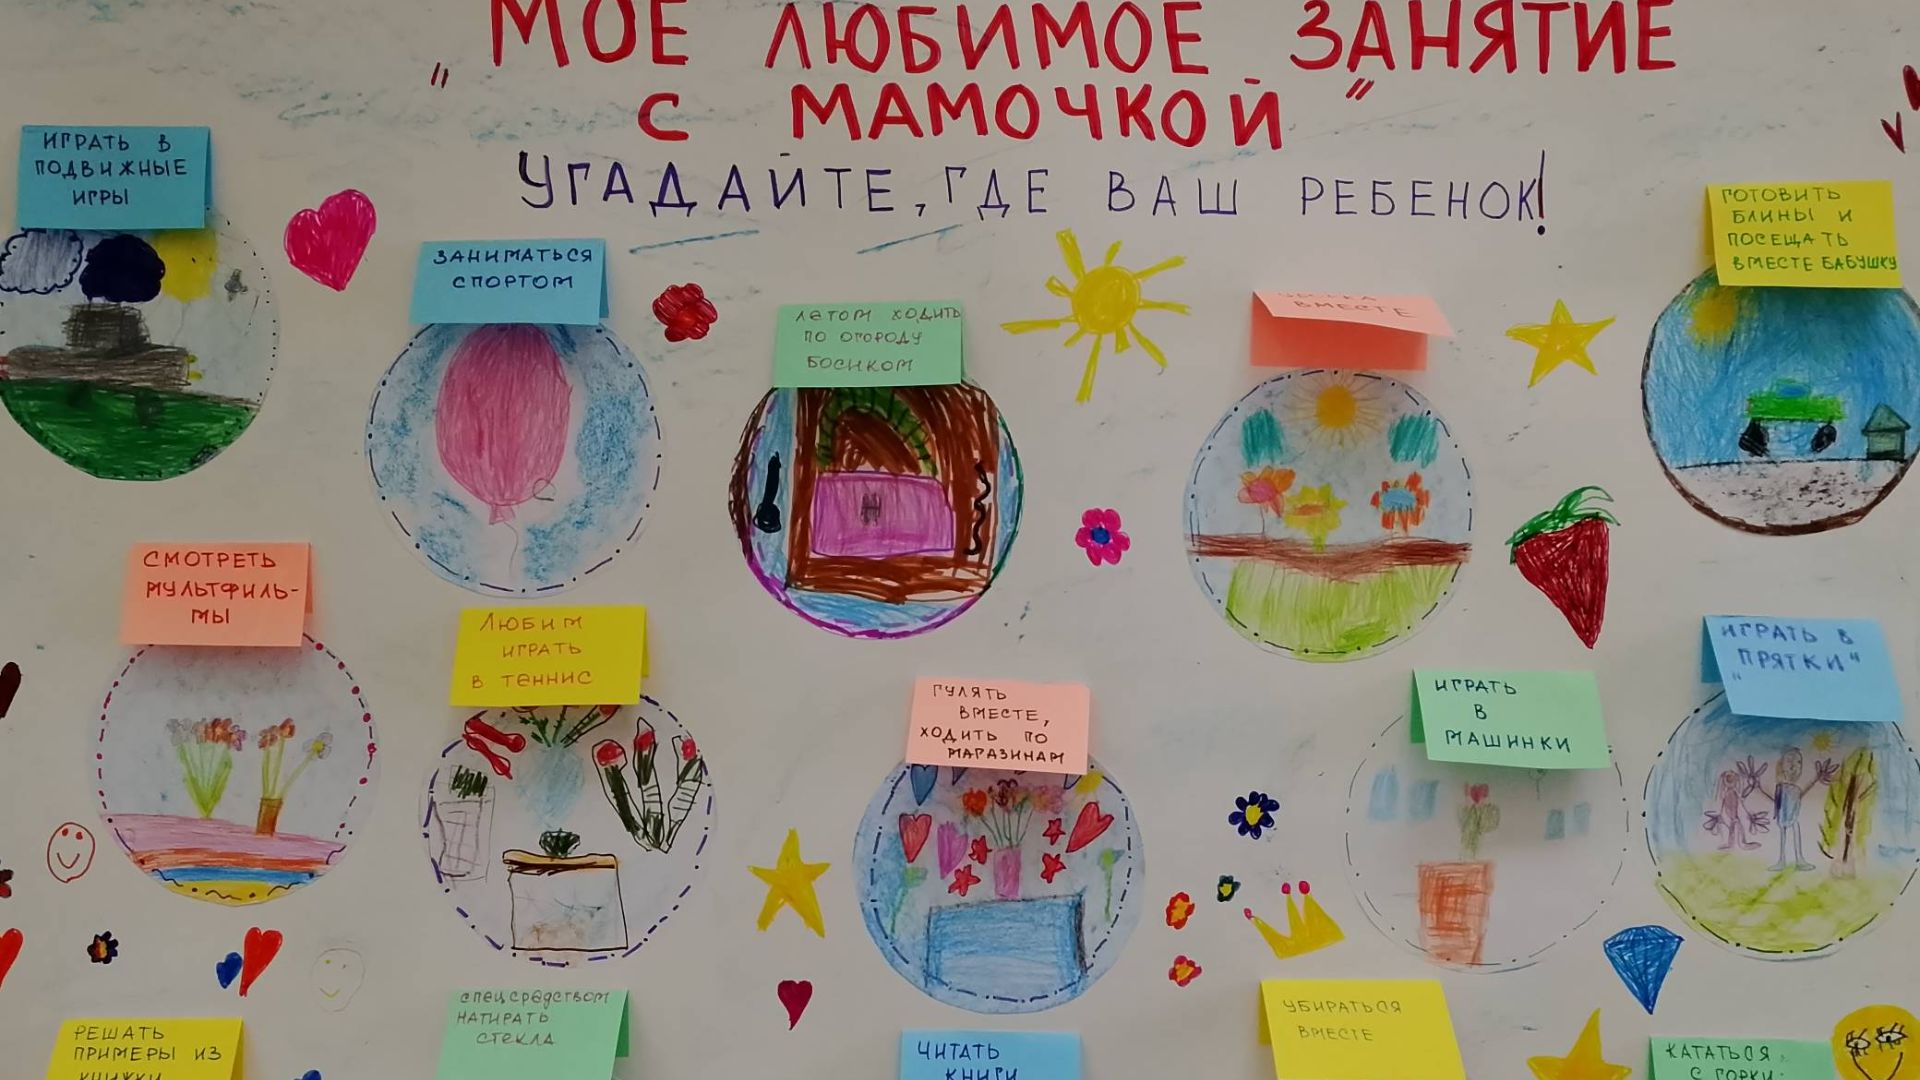 МОЕ ЛЮБИМОЕ ЗАНЯТИЕ
„С МАМОЧКОЙ“
УГАДАЙТЕ, ГДЕ ВАШ РЕБЕНОК!
ИГРАТЬ В
ПОДВИЖНЫЕ
ИГРЫ
ЗАНИМАТЬСЯ
СПОРТОМ
ЛЕТОМ ХОДИТЬ
ПО ОГОРОДУ
БОСИКОМ
ВМЕСТЕ
ГОТОВИТЬ
БЛИНЫ И
ПОСЕЩАТЬ
ВМЕСТЕ БАБУШКУ
СМОТРЕТЬ
МУЛЬТФИЛЬ-
МЫ
ЛЮБИМ
ИГРАТЬ
В ТЕННИС
ГУЛЯТЬ
ВМЕСТЕ,
ХОДИТЬ ПО
МАГАЗИНАМ
ИГРАТЬ
В
МАШИНКИ
ИГРАТЬ В
„ПРЯТКИ“
РЕШАТЬ
ПРИМЕРЫ ИЗ
КНИЖКИ
СПЕЦСРЕДСТВОМ
НАТИРАТЬ
СТЕКЛА
ЧИТАТЬ
КНИГИ
УБИРАТЬСЯ
ВМЕСТЕ
КАТАТЬСЯ
С ГОРКИ